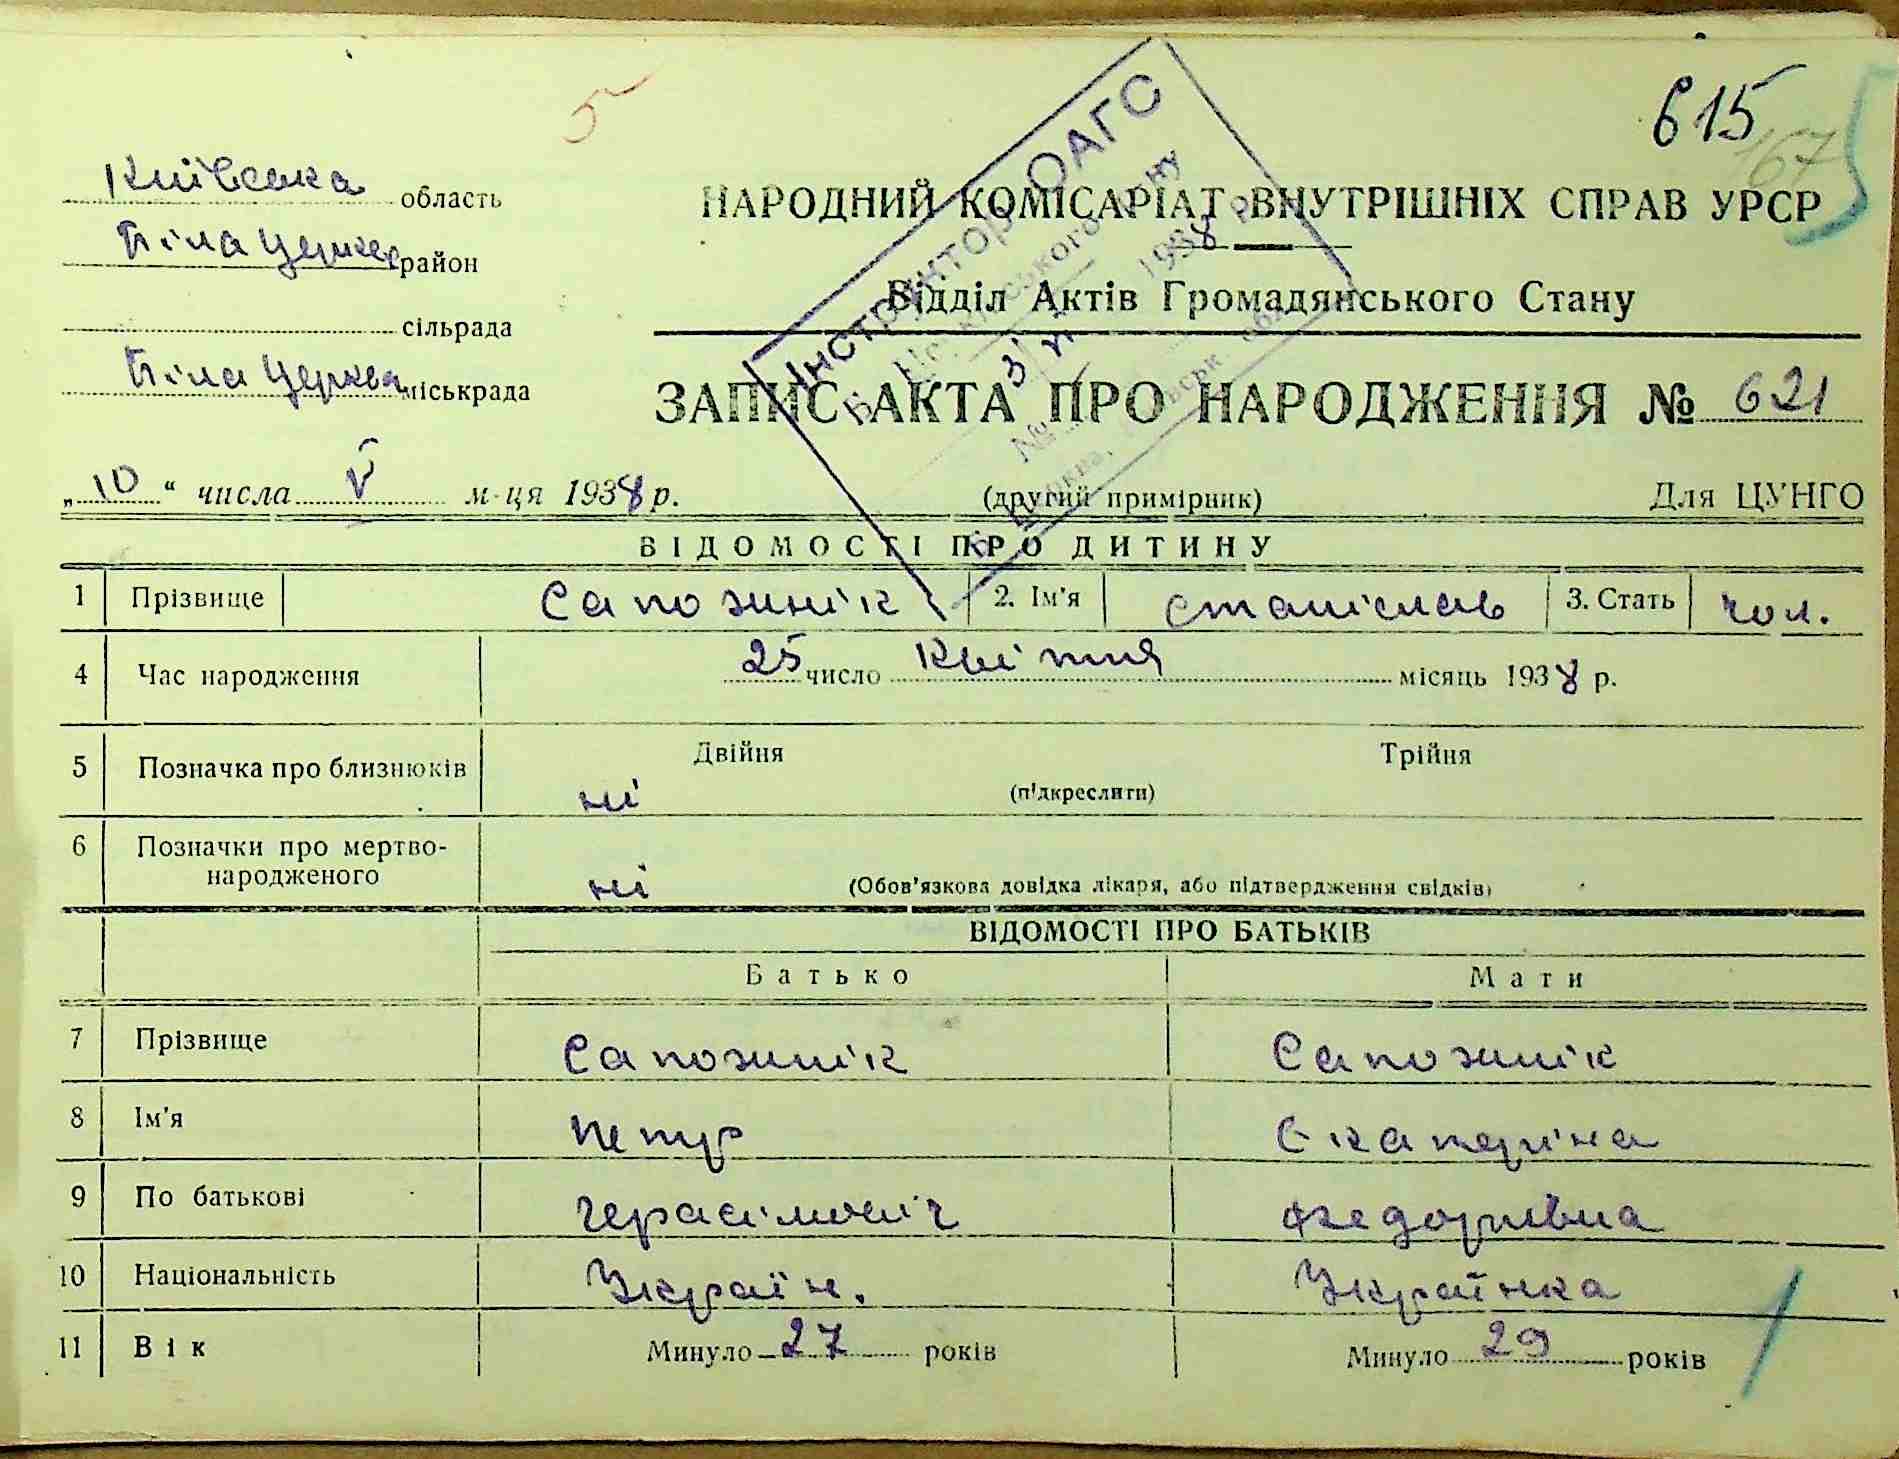 5
615
167
Київська область
Біла Церква район
сільрада
Біла Церква міськрада
НАРОДНИЙ КОМІСАРІАТ ВНУТРІШНІХ СПРАВ УРСР
Відділ Актів Громадянського Стану
Інструктор ОАГС
1938 р.
ЗАПИС АКТА ПРО НАРОДЖЕННЯ № 621
„10“ числа V м-ця 1938 р. (другий примірник) Для ЦУНГО
ВІДОМОСТІ ПРО ДИТИНУ
1 Прізвище Сапожнік 2. Ім'я Станіслав 3. Стать чол.
4 Час народження 25 число Квітня місяць 1938 р.
5 Позначка про близнюків ні Двійня (підкреслити) Трійня
6 Позначки про мертво-
народженого ні (Обов'язкова довідка лікаря, або підтвердження свідків)
ВІДОМОСТІ ПРО БАТЬКІВ
Батько Мати
7 Прізвище Сапожнік Сапожнік
8 Ім'я Петр Екатеріна
9 По батькові Герасімовіч Федорівна
10 Національність Україн. Українка
11 Вік Минуло 27 років Минуло 29 років